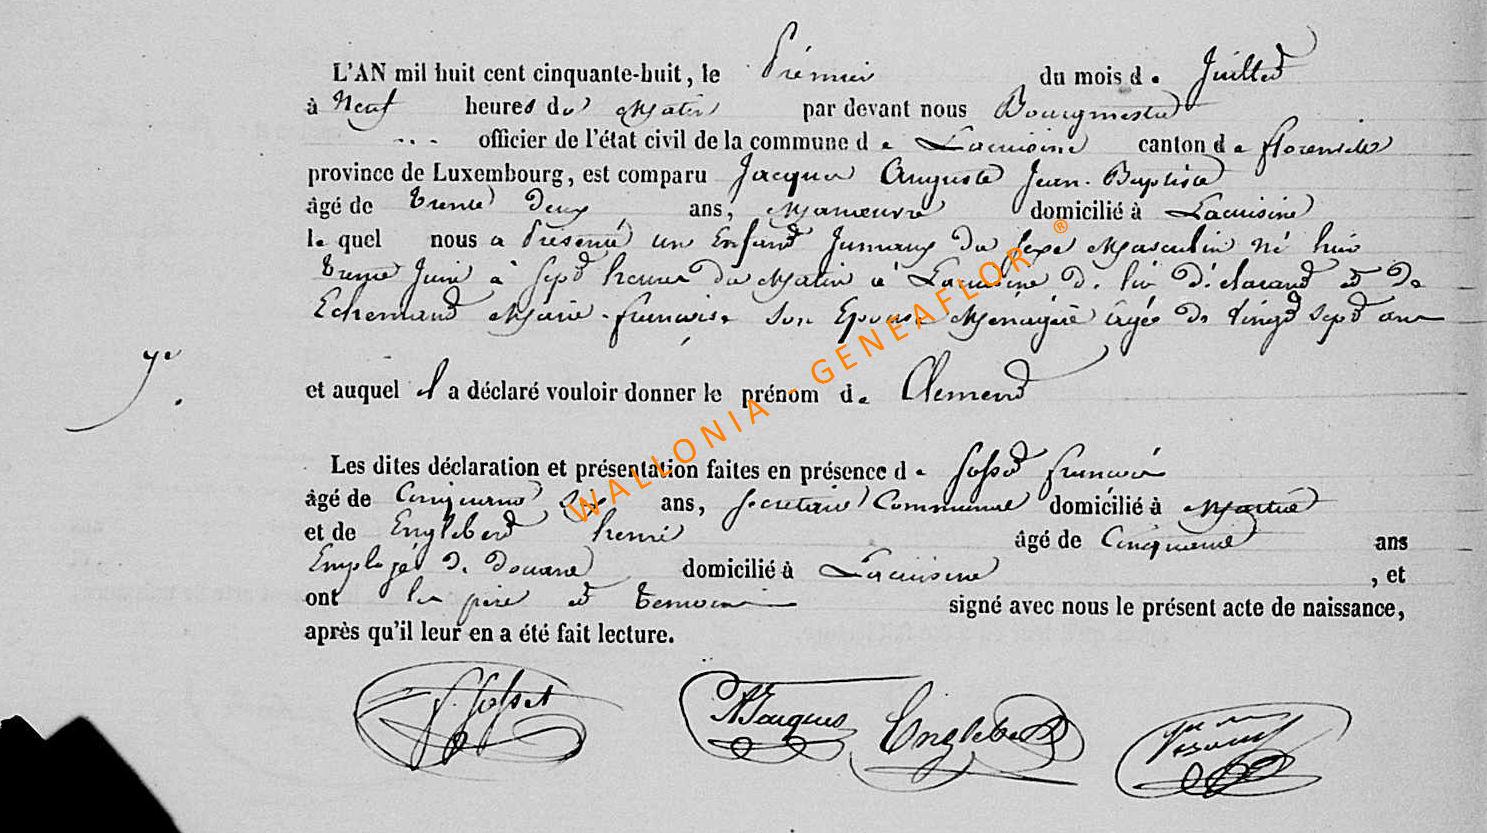 L'AN mil huit cent cinquante-huit, le Prémier du mois de Juillet
à Neuf heures du Matin par devant nous Bourgmestre
officier de l'état civil de la commune de Lacuisine canton de florenville
province de Luxembourg, est comparu Jacques Auguste Jean-Baptiste
âgé de Trente Deux ans, Manœuvre domicilié à Lacuisine
lequel nous a Présenté un Enfant Jumaux du Sexe Masculin né hier
trente Juin à Sept heures du Matin à Lacuisine de lui déclarant et de
Echemand Marie-francoise son Epouse Ménagère âgée de Vingt sept ans
et auquel il a déclaré vouloir donner le prénom de Clement
Les dites déclaration et présentation faites en présence de Josset francois
âgé de Cinquante Six ans, Secretaire Communal domicilié à
et de Englebert henri âgé de Cinquante ans
Employé de Douane domicilié à Lacuisine, et
ont les père et temoin signé avec nous le présent acte de naissance,
après qu'il leur en a été fait lecture.
Josset Jacques Englebert
WALLONIA - GENEAFLOR ®